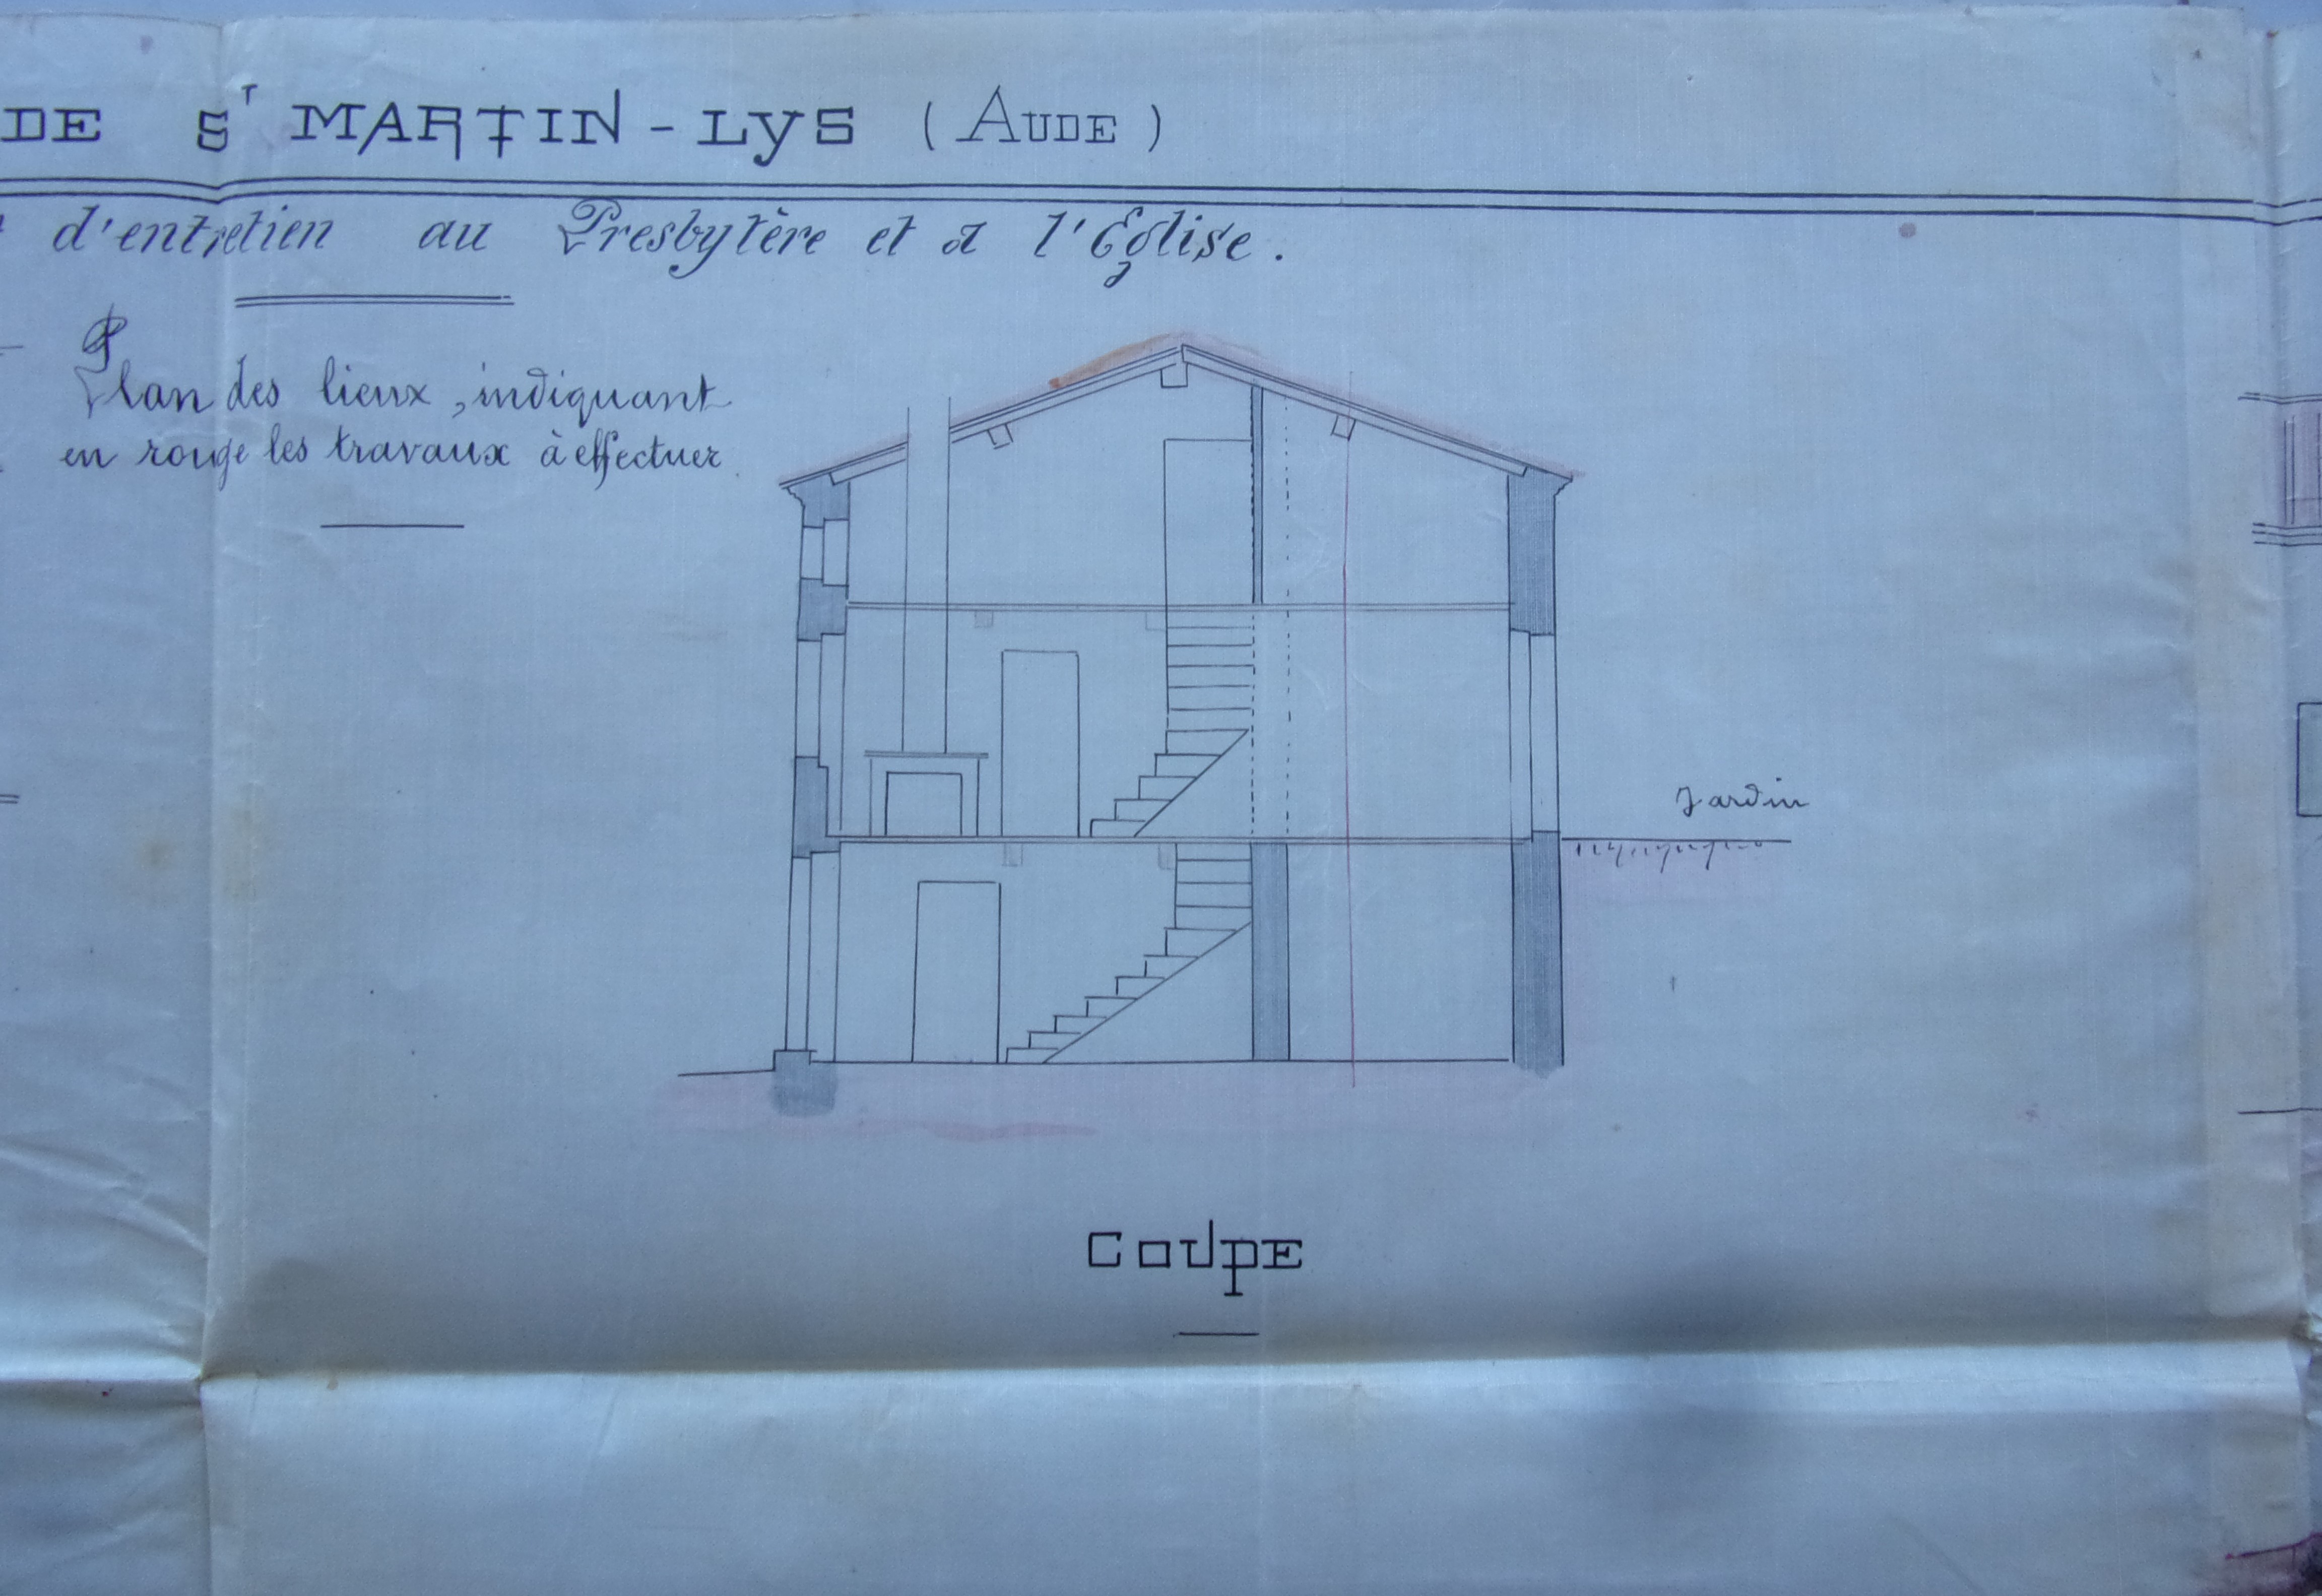 DE Sᵀ MARTIN-LYS (AUDE)
d'entretien au Presbytère et à l'Eglise.
Plan des lieux, indiquant
en rouge les travaux à effectuer
Jardin
COUPE